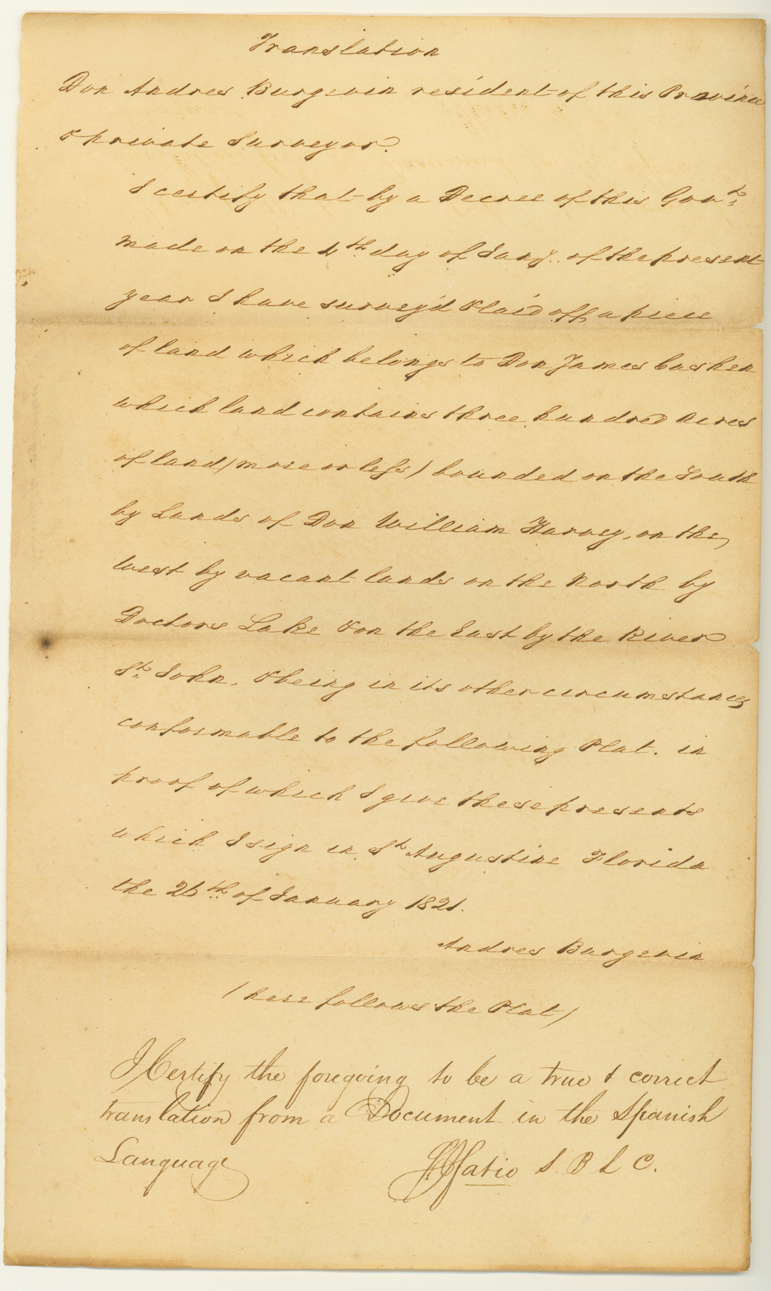 Translation
Don Andres Burgevin resident of this Province
& private Surveyor.
I certify that by a Decree of this Govt.
made on the 4th day of Jany. of the present
year I have survey'd & laid off a piece
of land which belongs to Don James Cashen
which land contains three hundred Acres
of land (more or less) bounded on the South
by Lands of Don William Harvey, on the
West by vacant lands on the North by
Doctors Lake & on the East by the River
St. John. & being in its other circumstances
conformable to the following Plat. in
proof of which I give these presents
which I sign in St Augustine Florida
the 26th of January 1821.
Andres Burgevin
(here follows the Plat)
I Certify the foregoing to be a true & correct
translation from a Document in the Spanish
Language
Fatio S. B L C.